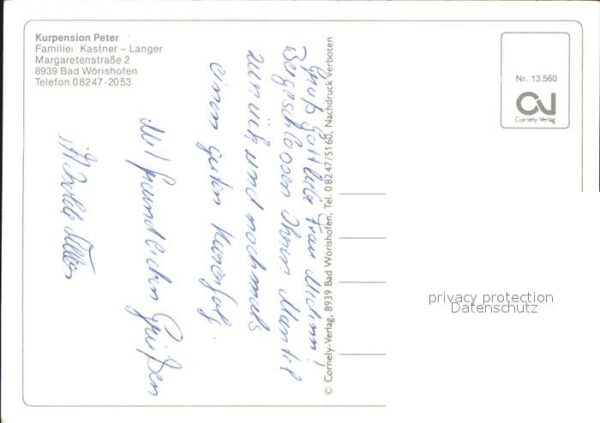 Kurpension Peter
Familien Kastner – Langer
Margaretenstraße 2
8939 Bad Wörishofen
Telefon 08247-2053
Grüß Gott liebe Frau
Beigeschlossen Ihren Mantel
zurück und nochmals
einen guten Kurerfolg.
Mit freundlichen Grüßen
© Cornely-Verlag, 8939 Bad Wörishofen, Tel. 08247/5160, Nachdruck verboten
Nr. 13.560
Cornely-Verlag
privacy protection
Datenschutz